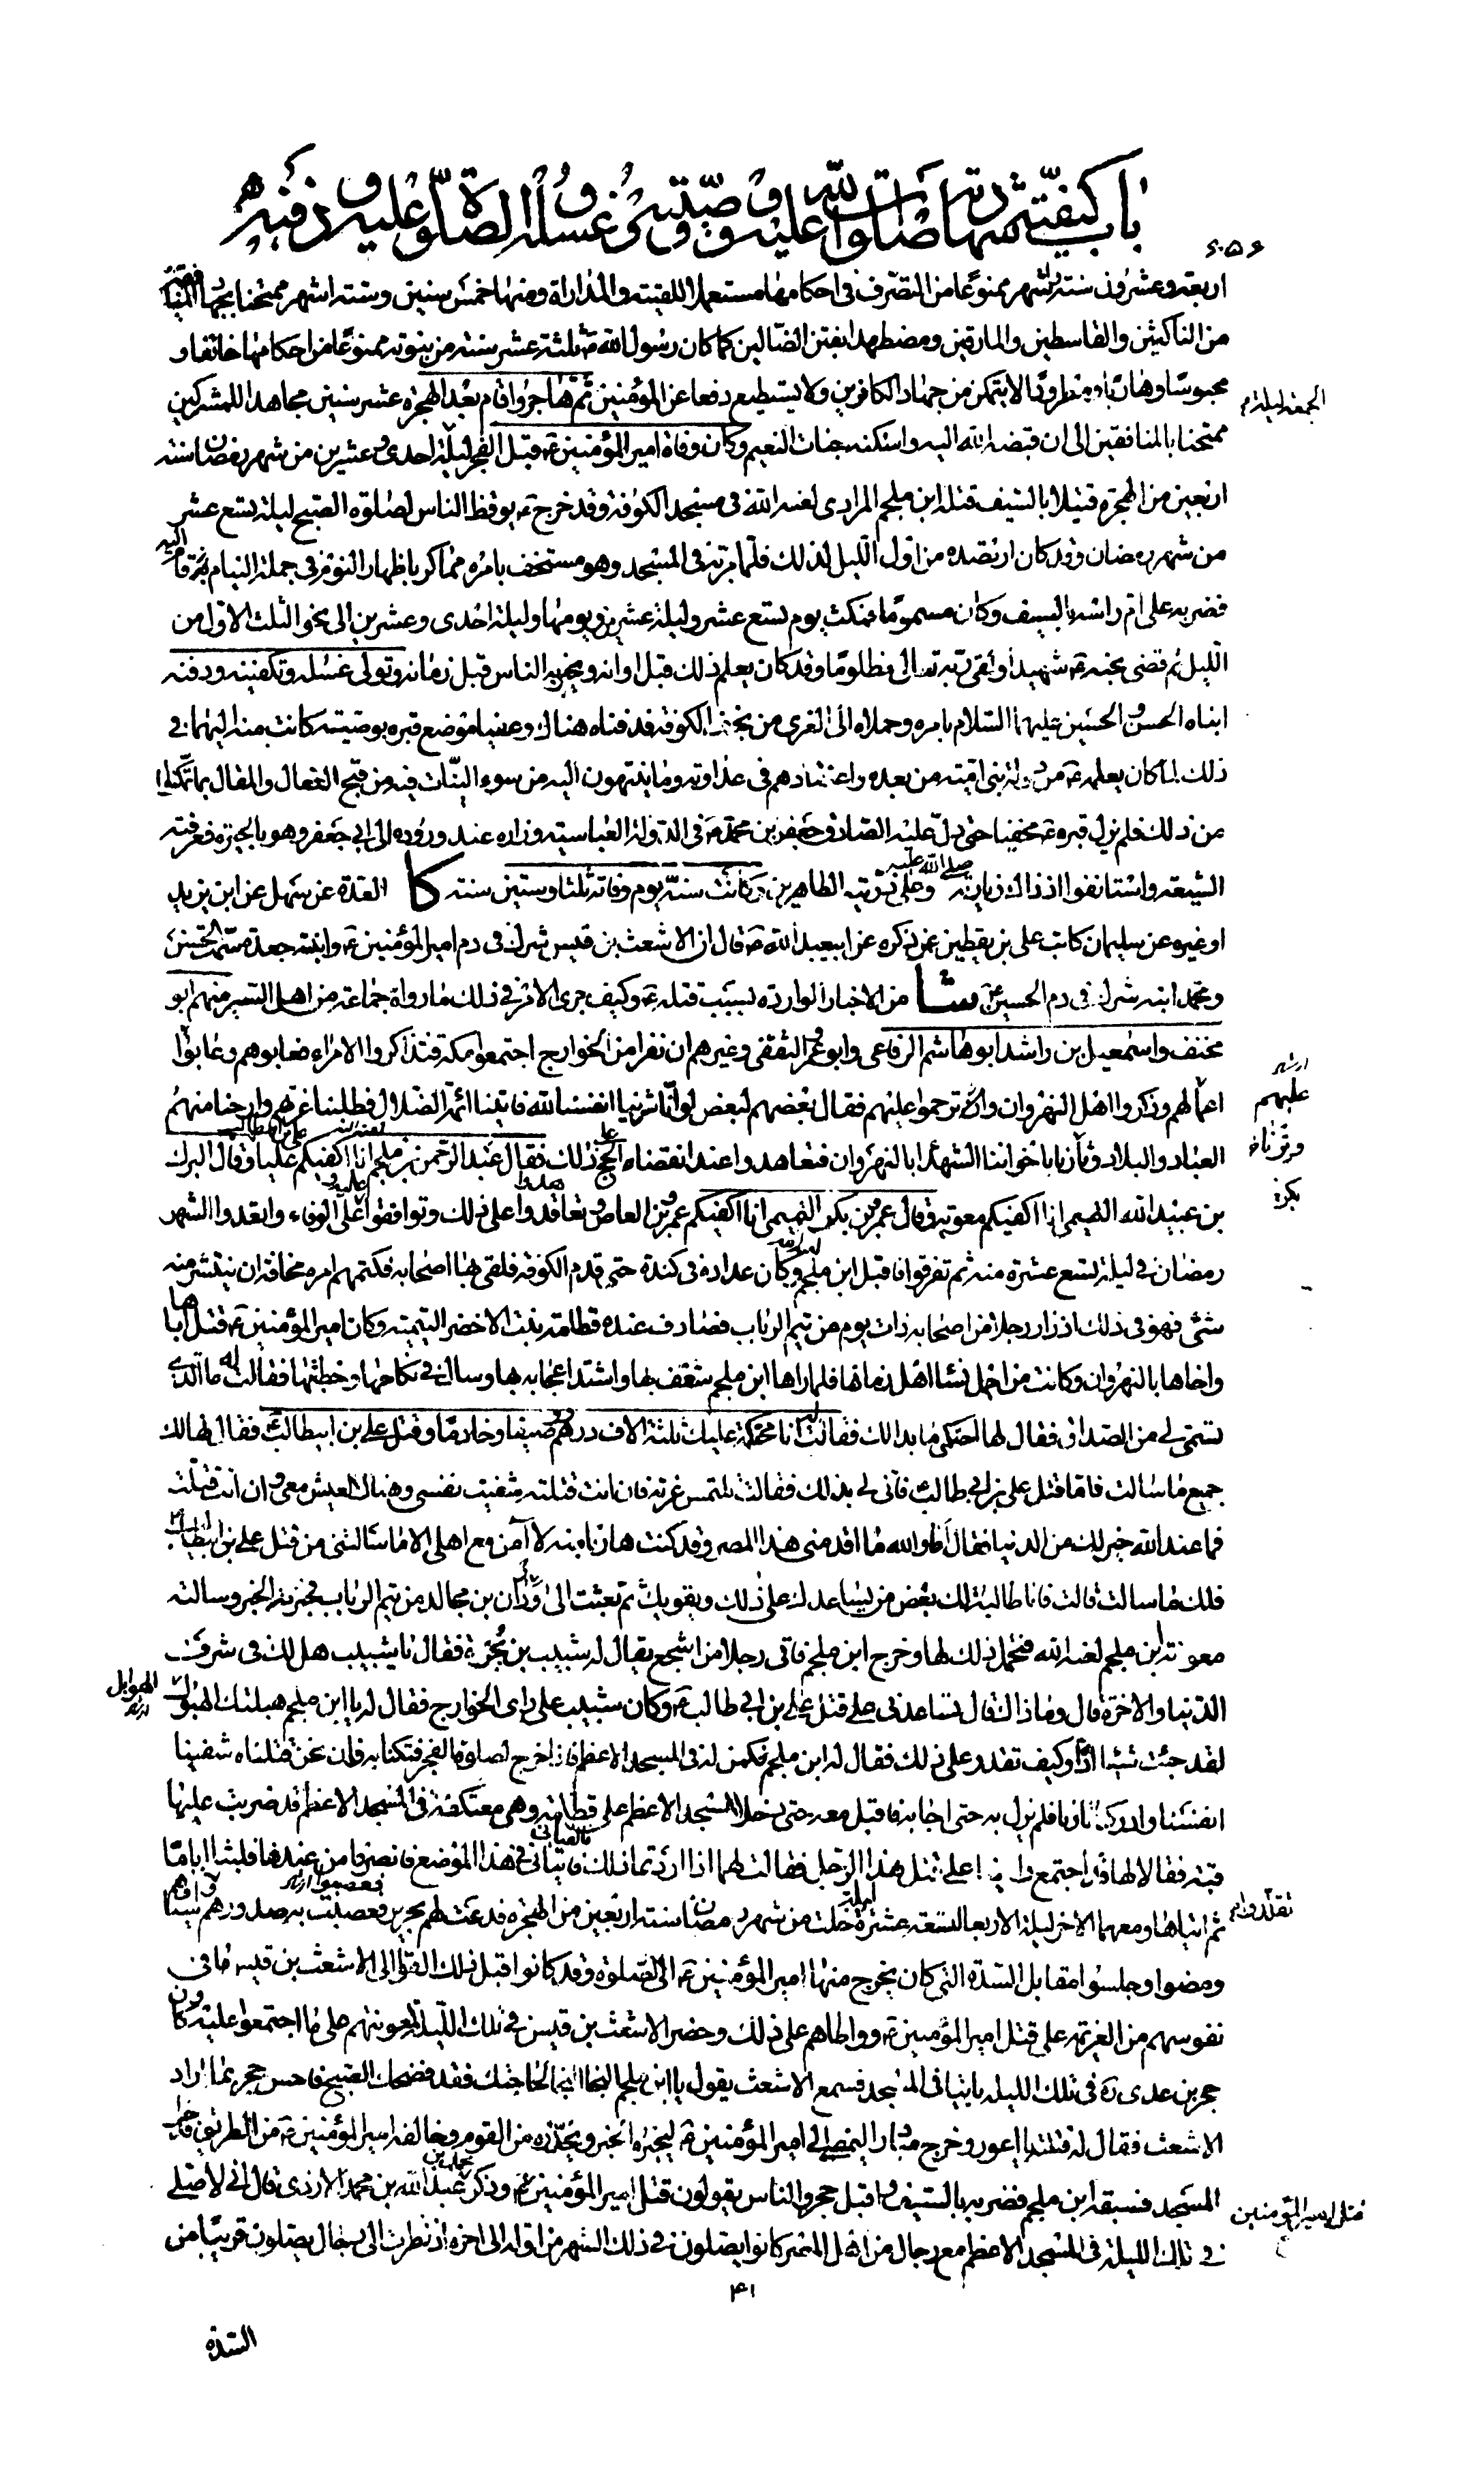 باب كيفية شهادته صلوات الله عليه و وصيته و غسله و الصلاة عليه و دفنه
۶۰۵۶
اربعة و عشرون سنة و اشهر ممنوعا من التصرف فى احكامها مستعملا للتقية و المداراة و منها خمس سنين و ستة اشهر ممتحنا بجهاد المنافقين
من الناكثين و القاسطين و المارقين و مضطهدا بفتن الضالين كما كان رسول الله ص ثلثة عشر سنة من نبوته ممنوعا من احكامها خائفا و
محبوسا و هاربا و مطرودا لا يتمكن من جهاد الكافرين و لا يستطيع دفعا عن المؤمنين ثم هاجر و اقام بعد الهجرة عشر سنين مجاهدا للمشركين
الجمعة ليلة م
ممتحنا بالمنافقين الى ان قبضه الله اليه و اسكنه جنات النعيم و كان وفاة امير المؤمنين ع قبل الفجر ليلة احدى و عشرين من شهر رمضان سنة
اربعين من الهجرة قتيلا بالسيف قتله ابن ملجم المرادى لعنه الله فى مسجد الكوفة و قد خرج ع يوقظ الناس لصلوة الصبح ليلة تسع عشر
من شهر رمضان و قد كان ارتصده من اول الليل لذلك فلما مر به فى المسجد و هو مستخف بامره مماكر باظهار النوم فى جملة النيام ثار اليه
فضربه على ام راسه بالسيف و كان مسموما فمكث يوم تسع عشر و ليلة عشرين و يومها و ليلة احدى و عشرين الى نحو الثلث الاول من
الليل ثم قضى نحبه ع شهيدا و لقى ربه تعالى مظلوما و قد كان يعلم ذلك قبل اوانه و يخبر به الناس قبل زمانه و تولى غسله و تكفينه و دفنه
ابناه الحسن و الحسين عليهما السلام بامره و حملاه الى الغرى من نجف الكوفة فدفناه هناك و عفيا موضع قبره بوصية كانت منه اليهما فى
ذلك لما كان يعلمه ع من دولة بنى امية من بعده و اعتقادهم فى عداوته و ما ينتهون اليه من سوء النيات فيه من قبح الفعال و المقال بما تمكنوا
من ذلك فلم يزل قبره ع مخفيا حتى دل عليه الصادق جعفر بن محمد ع فى الدولة العباسية و زاره عند وروده الى ابى جعفر و هو بالحيرة فعرفته
الشيعة و استانفوا اذ ذاك زيارته صلى الله عليه و على ذريته الطاهرين و كانت سنه يوم وفاته ثلثا و ستين سنة كا العدة عن سهل عن ابن يزيد
او غيره عن سليمان كاتب على بن يقطين عمن ذكره عن ابيعبد الله ع قال ان الاشعث بن قيس شرك فى دم امير المؤمنين ع و ابنته جعدة سمت الحسن
و محمد ابنه شرك فى دم الحسين ع شا من الاخبار الواردة بسبب قتله ع و كيف جرى الامر فى ذلك ما رواه جماعة من اهل السير منهم ابو
مخنف و اسمعيل بن راشد ابو هاشم الرفاعى و ابو عمرو الثقفى و غيرهم ان نفرا من الخوارج اجتمعوا بمكة فتذاكروا الامراء فعابوهم و عابوا
اعمالهم و ذكروا اهل النهروان و ترحموا عليهم فقال بعضهم لبعض لو انا شرينا انفسنا لله فاتينا ائمة الضلال فطلبنا غرتهم و ارحنا منهم
عليهم
العباد و البلاد و ثارنا باخواننا الشهداء بالنهروان فتعاهدوا عند انقضاء الحج على ذلك فقال عبد الرحمن بن ملجم لعنه الله انا اكفيكم عليا و قال البرك
بكر خ
بن عبيد الله التميمى انا اكفيكم معوية و قال عمرو بن بكر التميمى انا اكفيكم عمرو بن العاص و تعاقدوا على ذلك و توافقوا على الوفاء و اتعدوا الشهر
رمضان فى ليلة تسع عشرة منه ثم تفرقوا فاقبل ابن ملجم و كان عداده فى كندة حتى قدم الكوفة فلقى بها اصحابه فكتمهم امره مخافة ان ينتشر منه
شئ فهو فى ذلك اذ زار رجلا من اصحابه ذات يوم من تيم الرباب فصادف عنده قطامة بنت الاخضر التيمية و كان امير المؤمنين ع قتل اباها
و اخاها بالنهروان و كانت من اجمل نساء اهل زمانها فلما راها ابن ملجم شغف بها و اشتد اعجابه بها و سال فى نكاحها و خطبها فقالت له ما الذى
تسمى لى من الصداق فقال لها احتكمى ما بدا لك فقالت له انا محتكمة عليك ثلثة الاف درهم و وصيفا و خادما و قتل على بن ابيطالب ع فقال لها لك
جميع ما سالت فاما قتل على بن ابى طالب فانى لى بذلك فقالت تلتمس غرته فان انت قتلته شفيت نفسى و هناك العيش معى و ان انت قتلت
فما عند الله خير لك من الدنيا فقال اما و الله ما اقدمنى هذا المصر و قد كنت هاربا منه لا آمن مع اهله الا ما سالتنى من قتل على بن ابيطالب
فلك ما سالت قالت فانا طالبة لك بعض من يساعدك على ذلك و يقويك ثم بعثت الى وردان بن مجالد من تيم الرباب فخبرته الخبر و سالته
معونة ابن ملجم لعنه الله فتحمل ذلك لها و خرج ابن ملجم فاتى رجلا من اشجع يقال له شبيب بن بجرة فقال يا شبيب هل لك فى شرف
الدنيا و الاخرة قال و ما ذاك قال تساعدنى على قتل على بن ابى طالب ع و كان شبيب على راى الخوارج فقال له يا ابن ملجم هبلتك الهبول
الهوابل
لقد جئت شيئا ادا و كيف تقدر على ذلك فقال له ابن ملجم نكمن له فى المسجد الاعظم فاذا خرج لصلوة الفجر فتكنا به فان نحن قتلناه شفينا
انفسنا و ادركنا ثارنا فلم يزل به حتى اجابه فاقبل معه حتى دخلا المسجد الاعظم على قطامة و هى معتكفة فى المسجد الاعظم قد ضربت عليها
قبة فقالا لها قد اجتمع راينا على قتل هذا الرجل فقالت لهما اذا اردتما ذلك فاتيانى فى هذا الموضع فانصرفا من عندها فلبثا اياما
ثم اتياها و معهما الاخر ليلة الاربعا لتسعة عشرة ليلة خلت من شهر رمضان سنة اربعين من الهجرة فدعت لهم بحرير فعصبت به صدورهم
و مضوا و جلسوا مقابل السدة التى كان يخرج منها امير المؤمنين ع الى الصلوة و قد كانوا قبل ذلك القوا الى الاشعث بن قيس ما فى
نفوسهم من العزيمة على قتل امير المؤمنين ع و واطاهم على ذلك و حضر الاشعث بن قيس فى تلك الليلة لمعونتهم على ما اجتمعوا عليه و كان
حجر بن عدى ره فى تلك الليلة بايتا فى المسجد فسمع الاشعث يقول يا ابن ملجم النجا النجا لحاجتك فقد فضحك الصبح فاحس حجر بما اراد
الاشعث فقال له قتلته يا اعور و خرج مبادرا ليمضى الى امير المؤمنين ع ليخبره الخبر و يحذره من القوم و خالفه امير المؤمنين ع من الطريق فدخل
المسجد فسبقه ابن ملجم فضربه بالسيف و اقبل حجر و الناس يقولون قتل امير المؤمنين ع و ذكر عبد الله بن محمد الازدى قال انى لاصلى
قتل امير المؤمنين ع
فى تلك الليلة فى المسجد الاعظم مع رجال من اهل المصر كانوا يصلون فى ذلك الشهر من اوله الى اخره اذ نظرت الى رجال يصلون قريبا من
۴۱
السدة